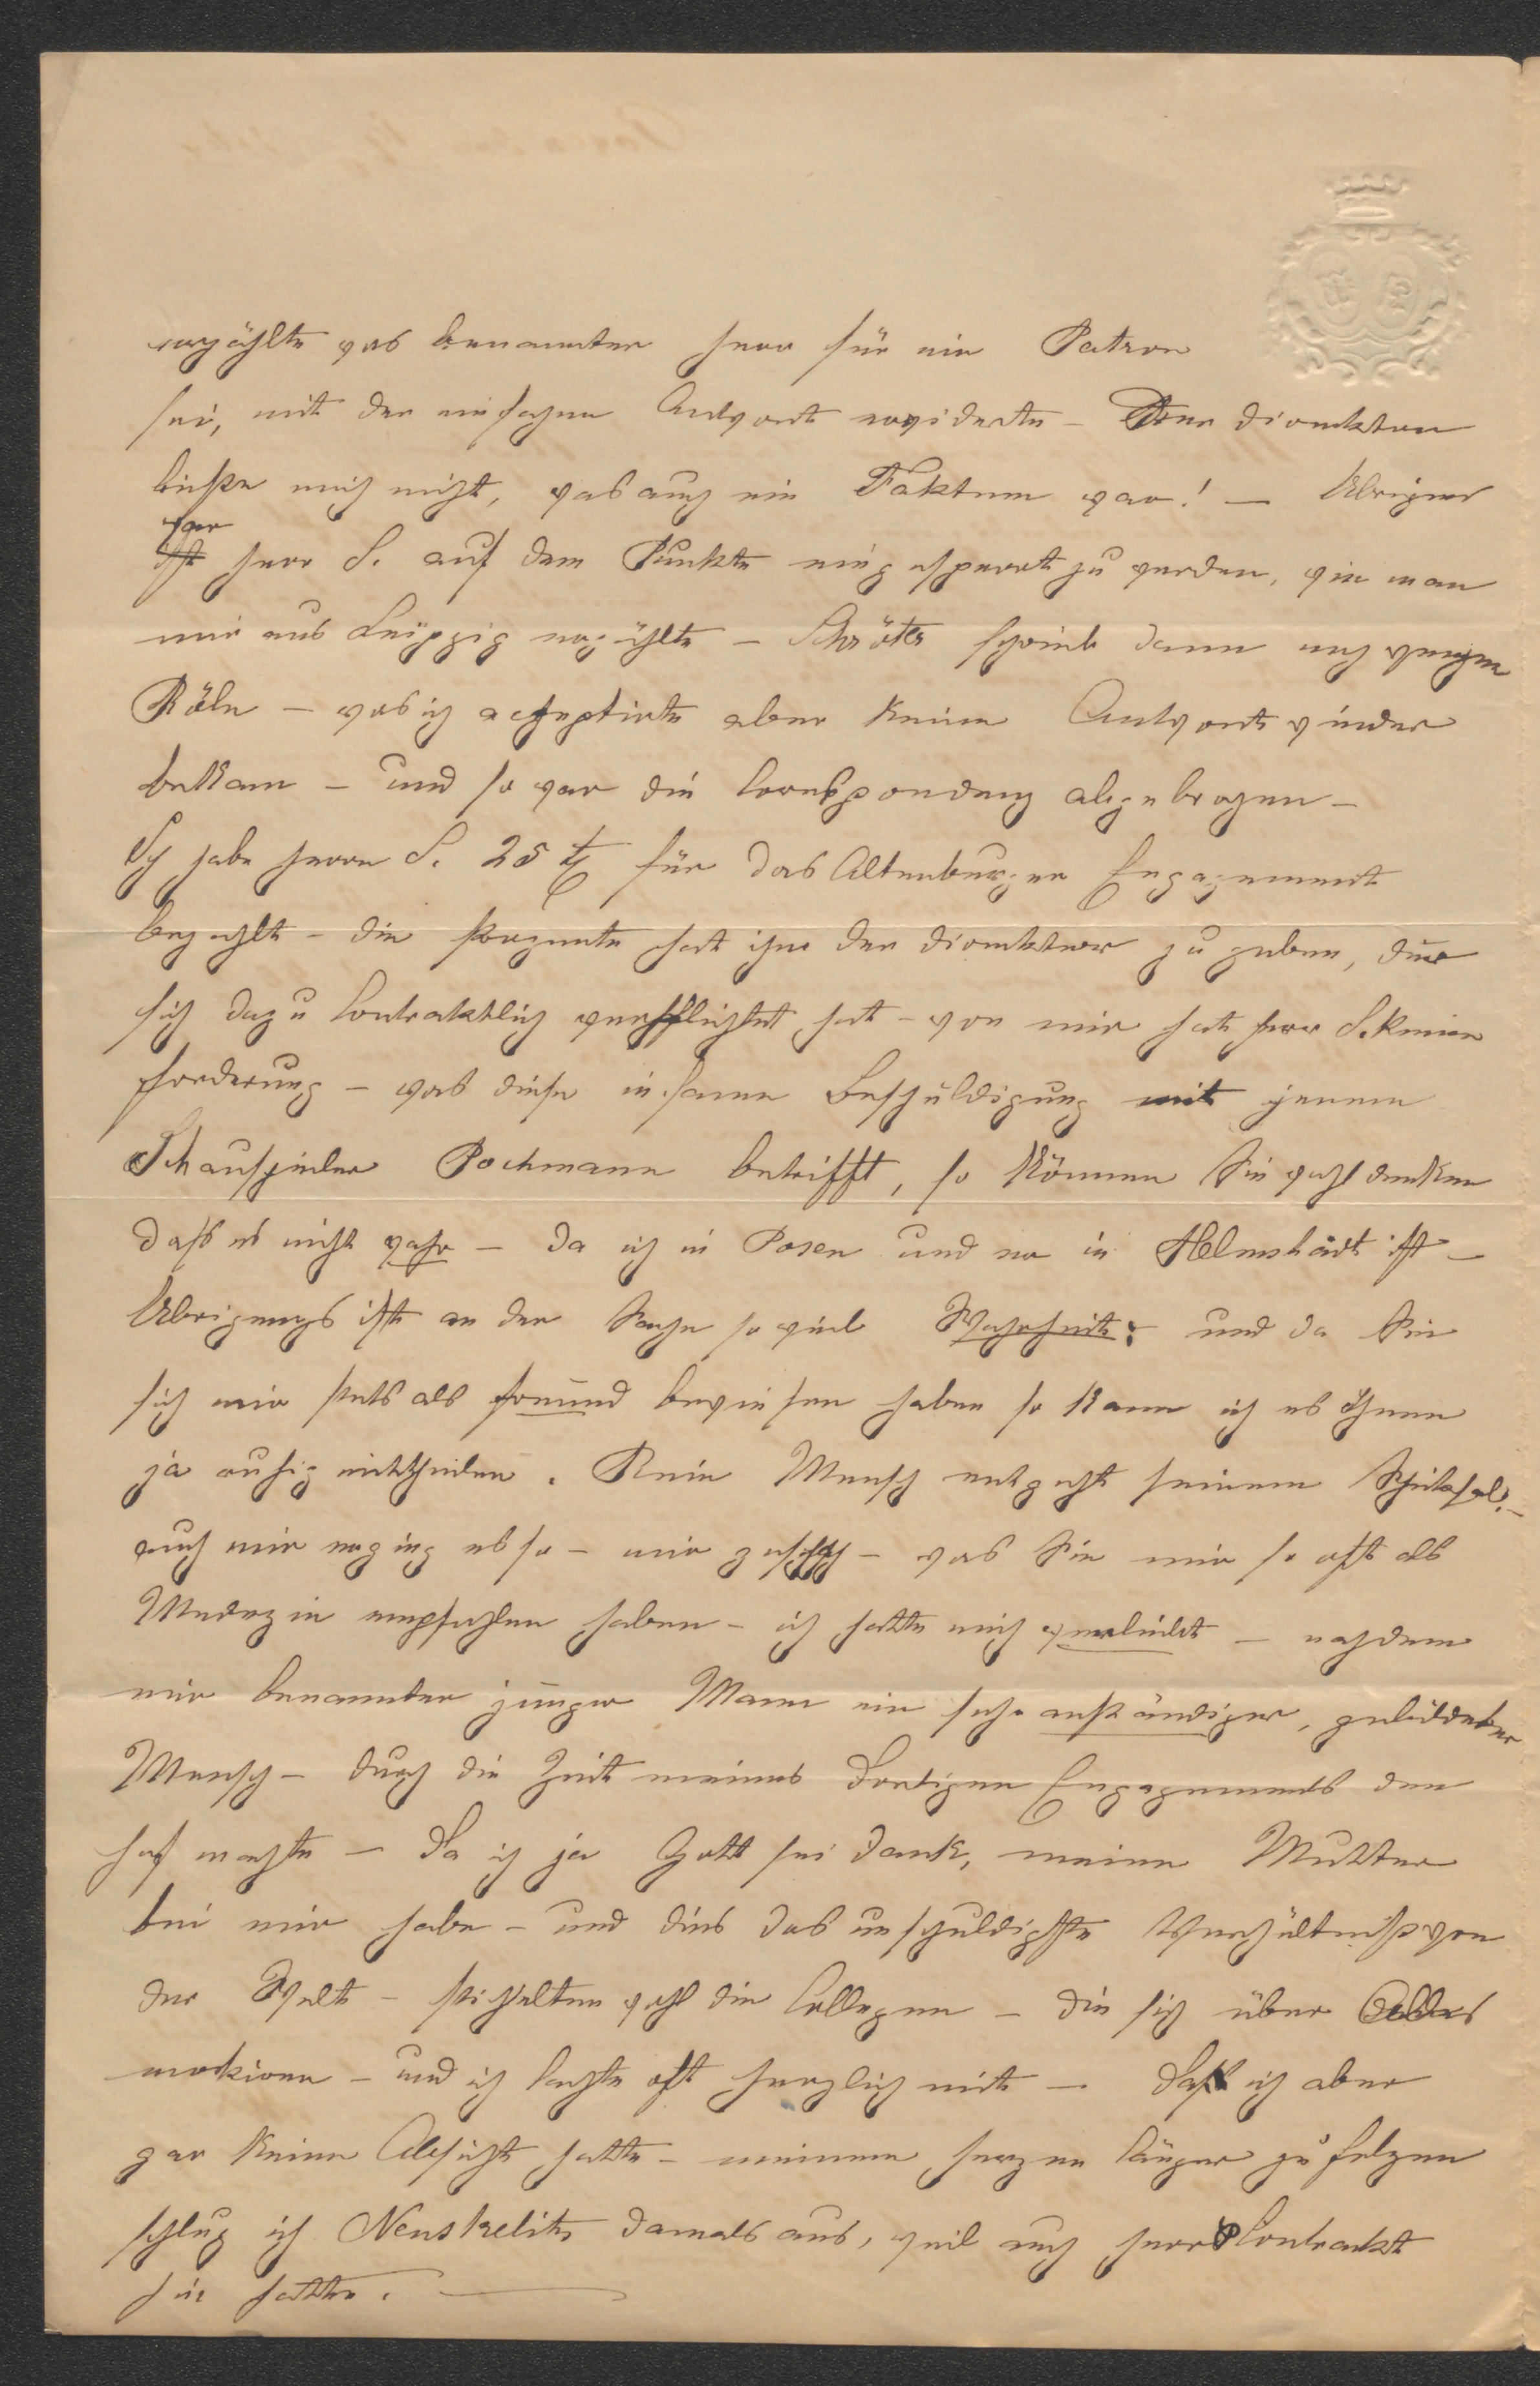 erzählte was benannter Herr für ein Patron
sei, mit der einfachen Antwort erwiderte – Der Direktor
ließe mich nicht, was auch ein Faktum war! – Übrigens
war
ist Herr S. auf dem Punkte eingesperrt zu werden, wie man
mir aus Leipzig erzählte – Schröter schrieb dann noch wegen
Köln – was ich acceptirte aber keine Antwort wieder
bekam – und so war die Correspondenz abgebrochen –
Ich habe Herrn S. 25 für das Altenburger Engagement
bezahlt – die Prozente hat ihm der Direktor zu geben, der
sich dazu Contraktlich verpflichtet hat – von mir hat Herr S. keine
Forderung – was diese infame Beschuldigung mit jenem
Schauspieler Pochmann betrifft, so können Sie wohl denken
daß es nicht wahr – da ich in Posen und er in Helmstädt ist –
Übrigens ist an der Sache so viel Wahrheit: und da Sie
sich mir stets als Freund bewiesen haben so kann ich es Ihnen
ja ruhig mittheilen. Kein Mensch entgeht seinem Schicksal. –
auch mir erging es so – mir geschah – was Sie mir so oft als
Medezin empfohlen haben – ich hatte mich verliebt – nachdem
mir benannter junger Mann ein sehr anständiger, gebildeter
Mensch – durch die Zeit meines Dortigen Engagements den
Hof machte – Da ich ja Gott sei Dank, meine Mutter
bei mir habe – und dies das unschuldigste Verhältniß von
der Welt – stichelten wohl die Collegen – die sich über Alles
mockiren – und ich lachte oft herzlich mit – Daß ich aber
gar keine Absicht hatte – meinem Herzen länger zu folgen
schlug ich Neustrelitz damals aus, weil auch Herr P Contrackt
hin hatte.